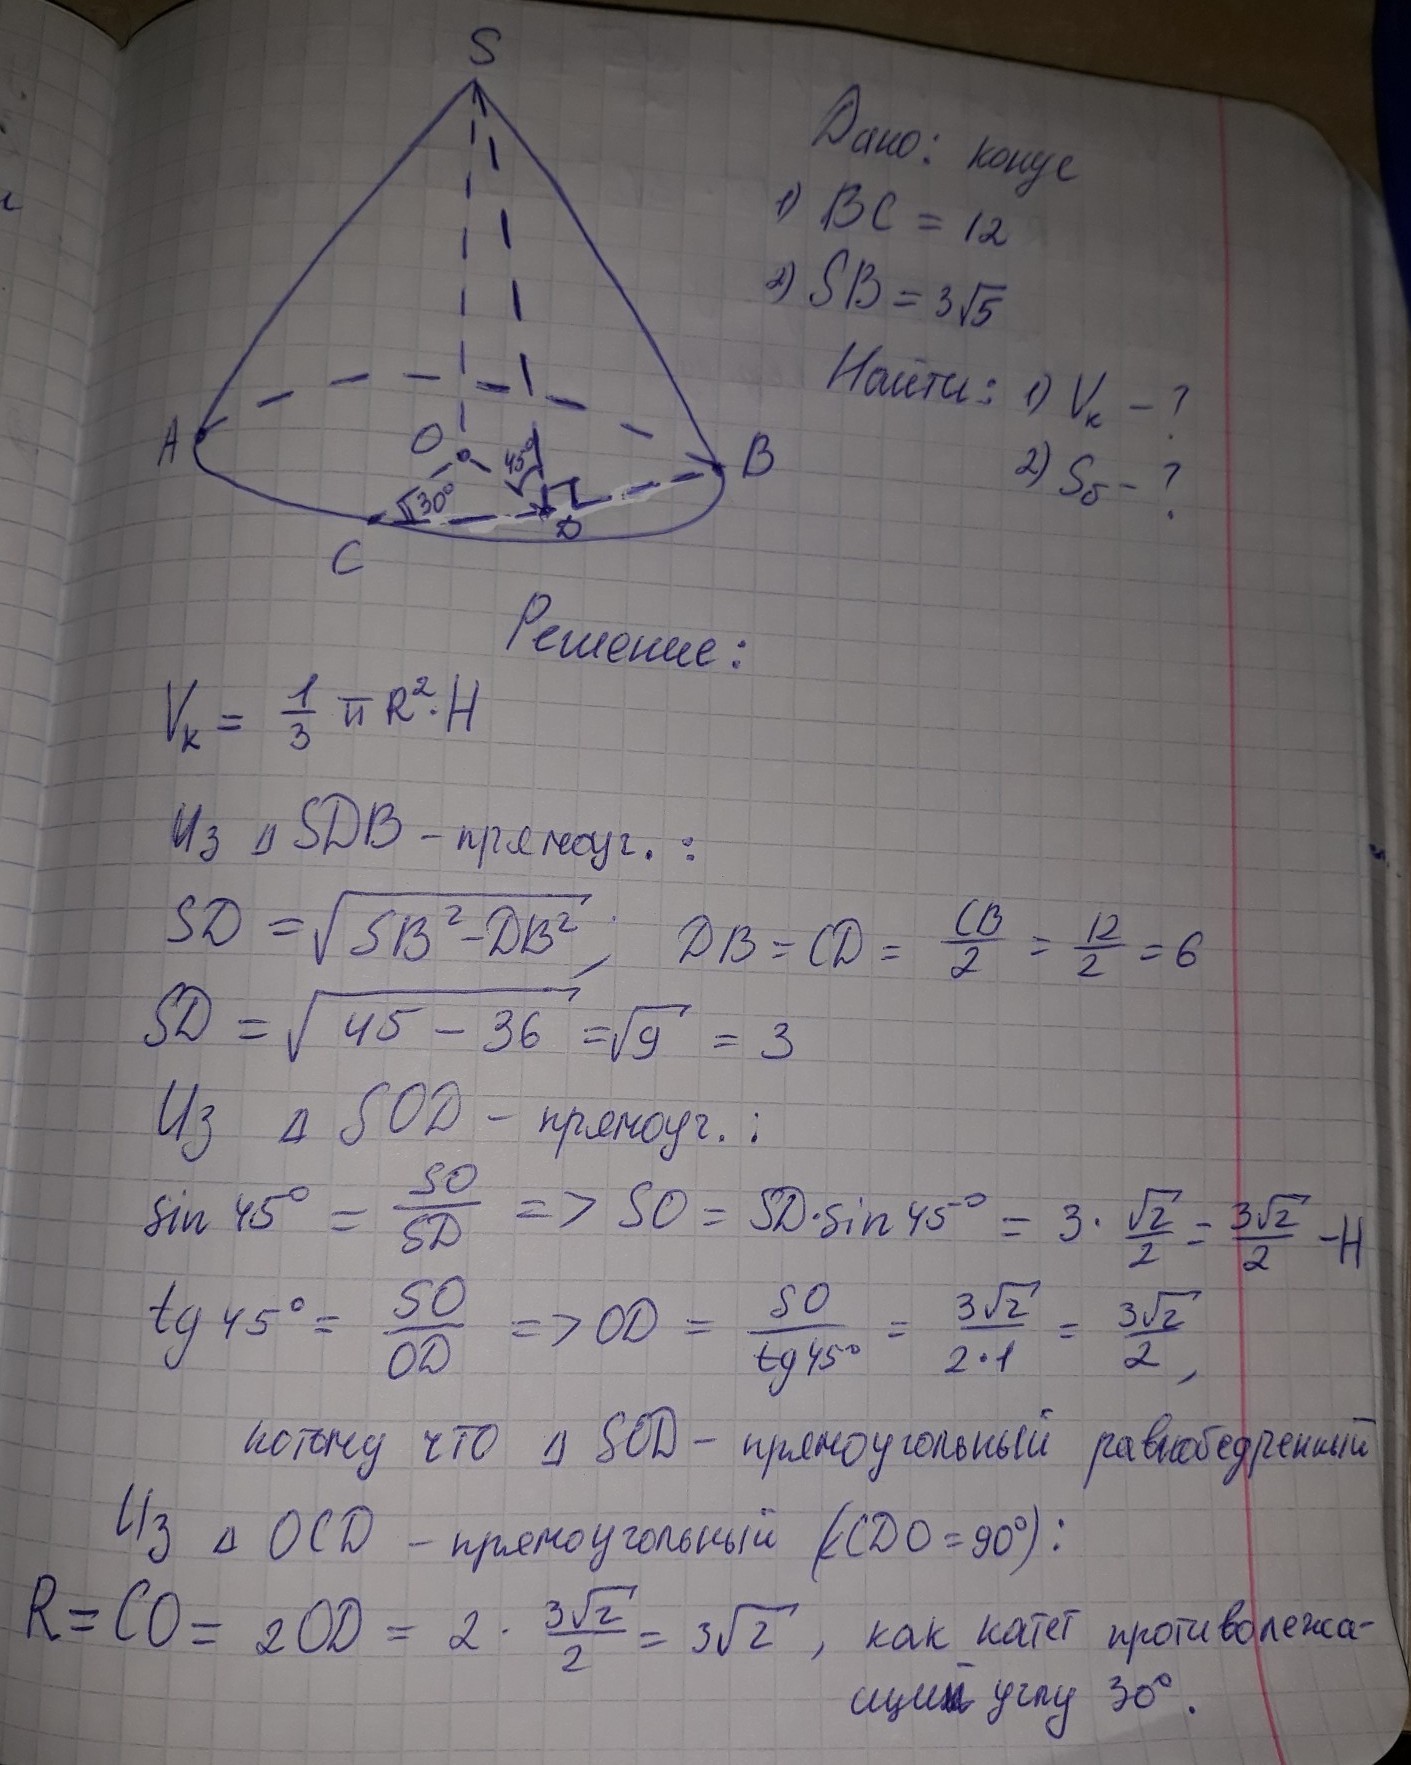 S
Дано: конус
1) BC = 12
2) SB = 3√5
Найти: 1) Vк - ?
2) Sб - ?
A
O
45°
B
30°
D
C
Решение:
Vк = 1/3 π R²·H
Из △ SDB - прямоуг. :
SD = √(SB² - DB²) ; DB = CD = CB/2 = 12/2 = 6
SD = √(45 - 36) = √9 = 3
Из △ SOD - прямоуг. :
sin 45° = SO/SD => SO = SD·sin 45° = 3 · √2/2 = 3√2/2 - H
tg 45° = SO/OD => OD = SO/tg 45° = 3√2/2·1 = 3√2/2 ,
потому что △ SOD - прямоугольный равнобедренный
Из △ OCD - прямоугольный (∠CDO = 90°) :
R = CO = 2OD = 2 · 3√2/2 = 3√2 , как катет противолежа-
щий углу 30°.